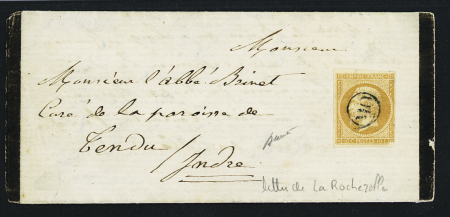 Monsieur
Monsieur l'abbé Brinet
Curé de la paroisse de
Tendu
Indre
EMPIRE FRANC
lettre de La Rochepolle